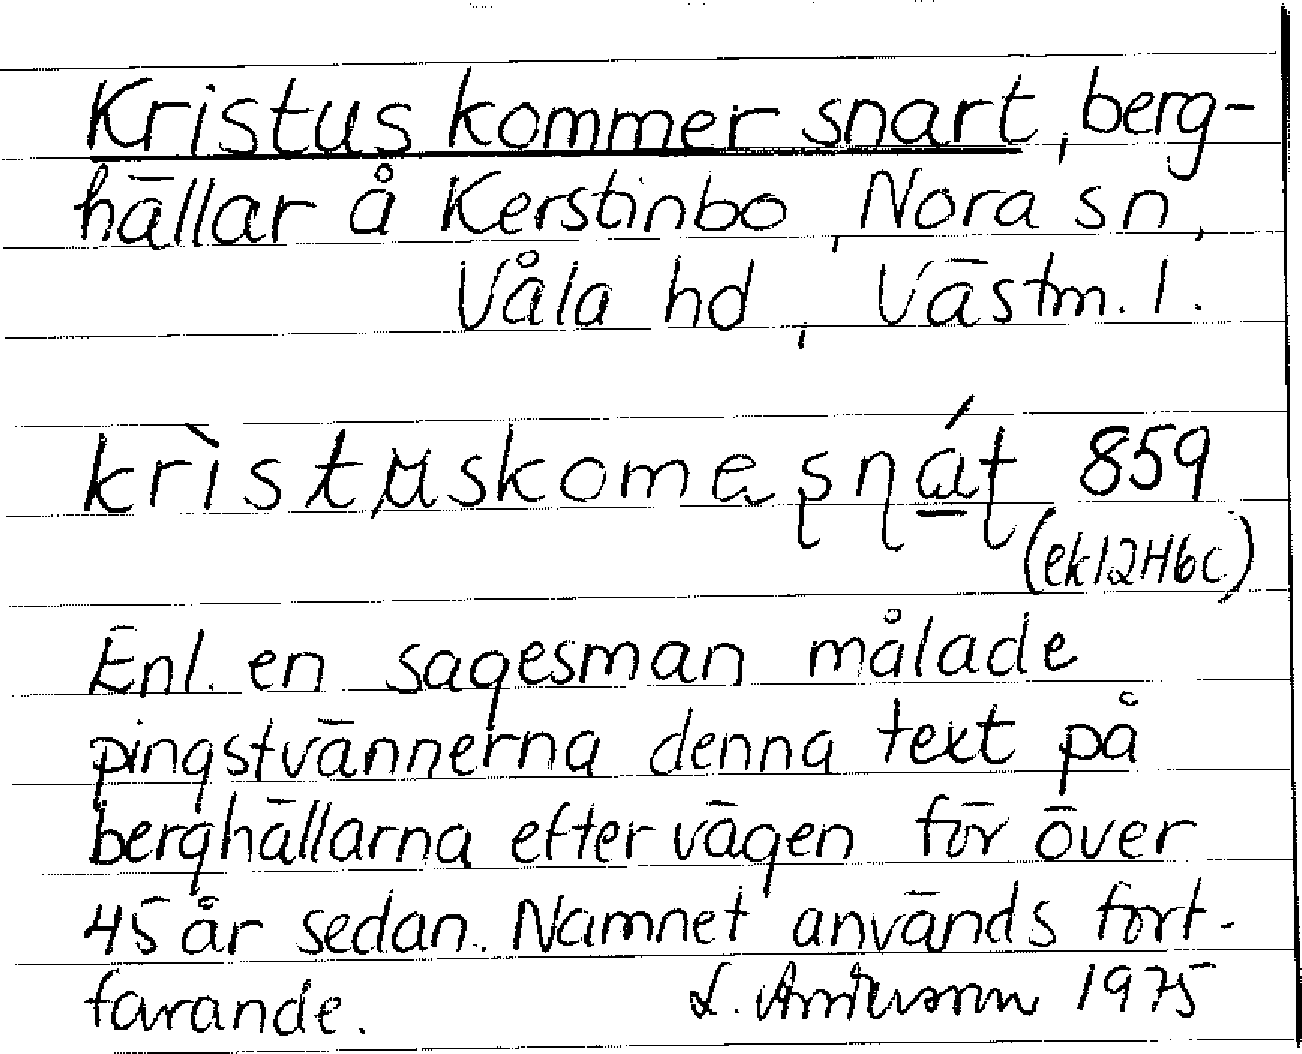 Kristus kommer snart, berg-
hällar å Kerstinbo, Nora sn,
Våla hd, Västm. l.
krìstuskome ʂɳáʈ 859
(ek12H6c)
Enl. en sagesman målade
pingstvännerna denna text på
berghällarna efter vägen för över
45 år sedan. Namnet används fort-
farande. L. Andersson 1975